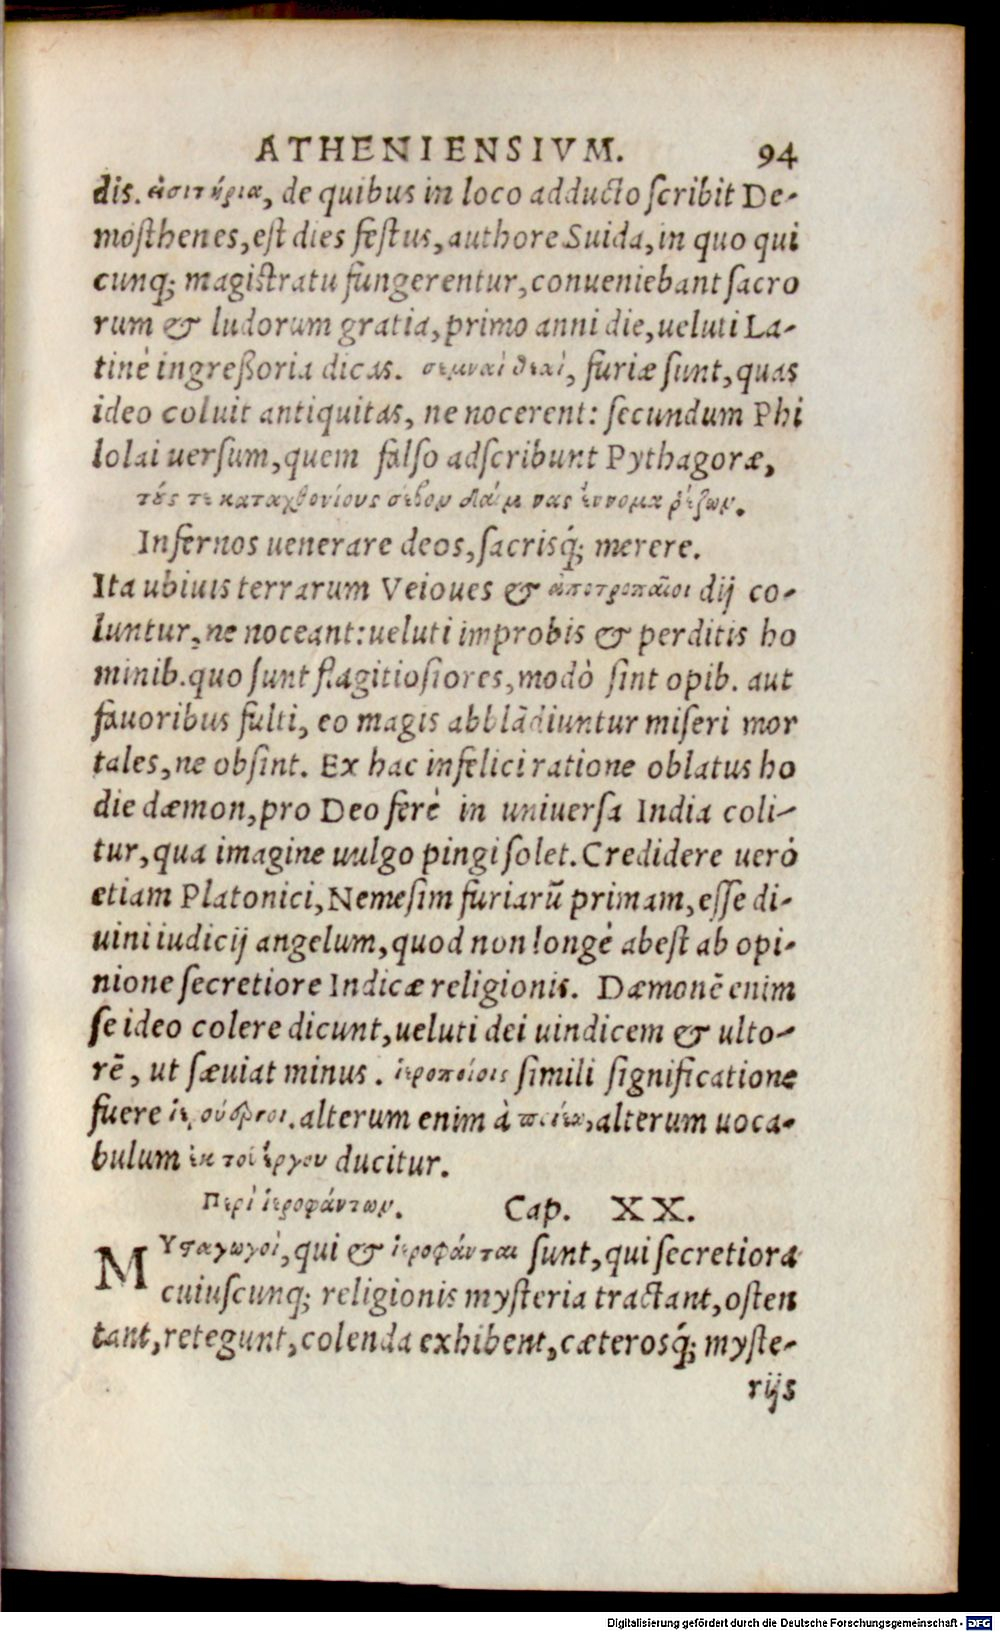 ATHENIENSIVM. 94
dis. εἰσιτήρια, de quibus in loco adducto ſcribit De-
moſthenes, eſt dies feſtus, authore Suida, in quo qui
cunq; magiſtratu fungerentur, conueniebant ſacro
rum & ludorum gratia, primo anni die, ueluti La-
tinè ingreßoria dicas. σεμναὶ θεαί, furiæ ſunt, quas
ideo coluit antiquitas, ne nocerent: ſecundum Phi
lolai uerſum, quem falſo adſcribunt Pythagoræ,
τούς τε καταχθονίους σέβου δαίμονας ἔννομα ῥέζων.
Infernos uenerare deos, ſacrisq́; merere.
Ita ubiuis terrarum Veioues & ἀποτροπαῖοι dij co-
luntur, ne noceant: ueluti improbis & perditis ho
minib. quo ſunt flagitioſiores, modò ſint opib. aut
fauoribus fulti, eo magis abblādiuntur miſeri mor
tales, ne obſint. Ex hac infelici ratione oblatus ho
die dæmon, pro Deo ferè in uniuerſa India coli-
tur, qua imagine uulgo pingi ſolet. Credidere uerò
etiam Platonici, Nemeſim furiarū primam, eſſe di-
uini iudicij angelum, quod non longè abeſt ab opi-
nione ſecretiore Indicæ religionis. Dæmonē enim
ſe ideo colere dicunt, ueluti dei uindicem & ulto-
rē, ut ſæuiat minus. ἱεροποίοις ſimili ſignificatione
fuere ἱερούργοι. alterum enim à ποιέω, alterum uoca-
bulum ἐκ τοῦ ἔργου ducitur.
Περὶ ἱεροφάντων. Cap. XX.
ΜΥσαγωγοὶ, qui & ἱεροφάνται ſunt, qui ſecretiora
cuiuſcunq; religionis myſteria tractant, oſten
tant, retegunt, colenda exhibent, cæterosq́; myſte-
rijs
Digitalisierung gefördert durch die Deutsche Forschungsgemeinschaft - DFG